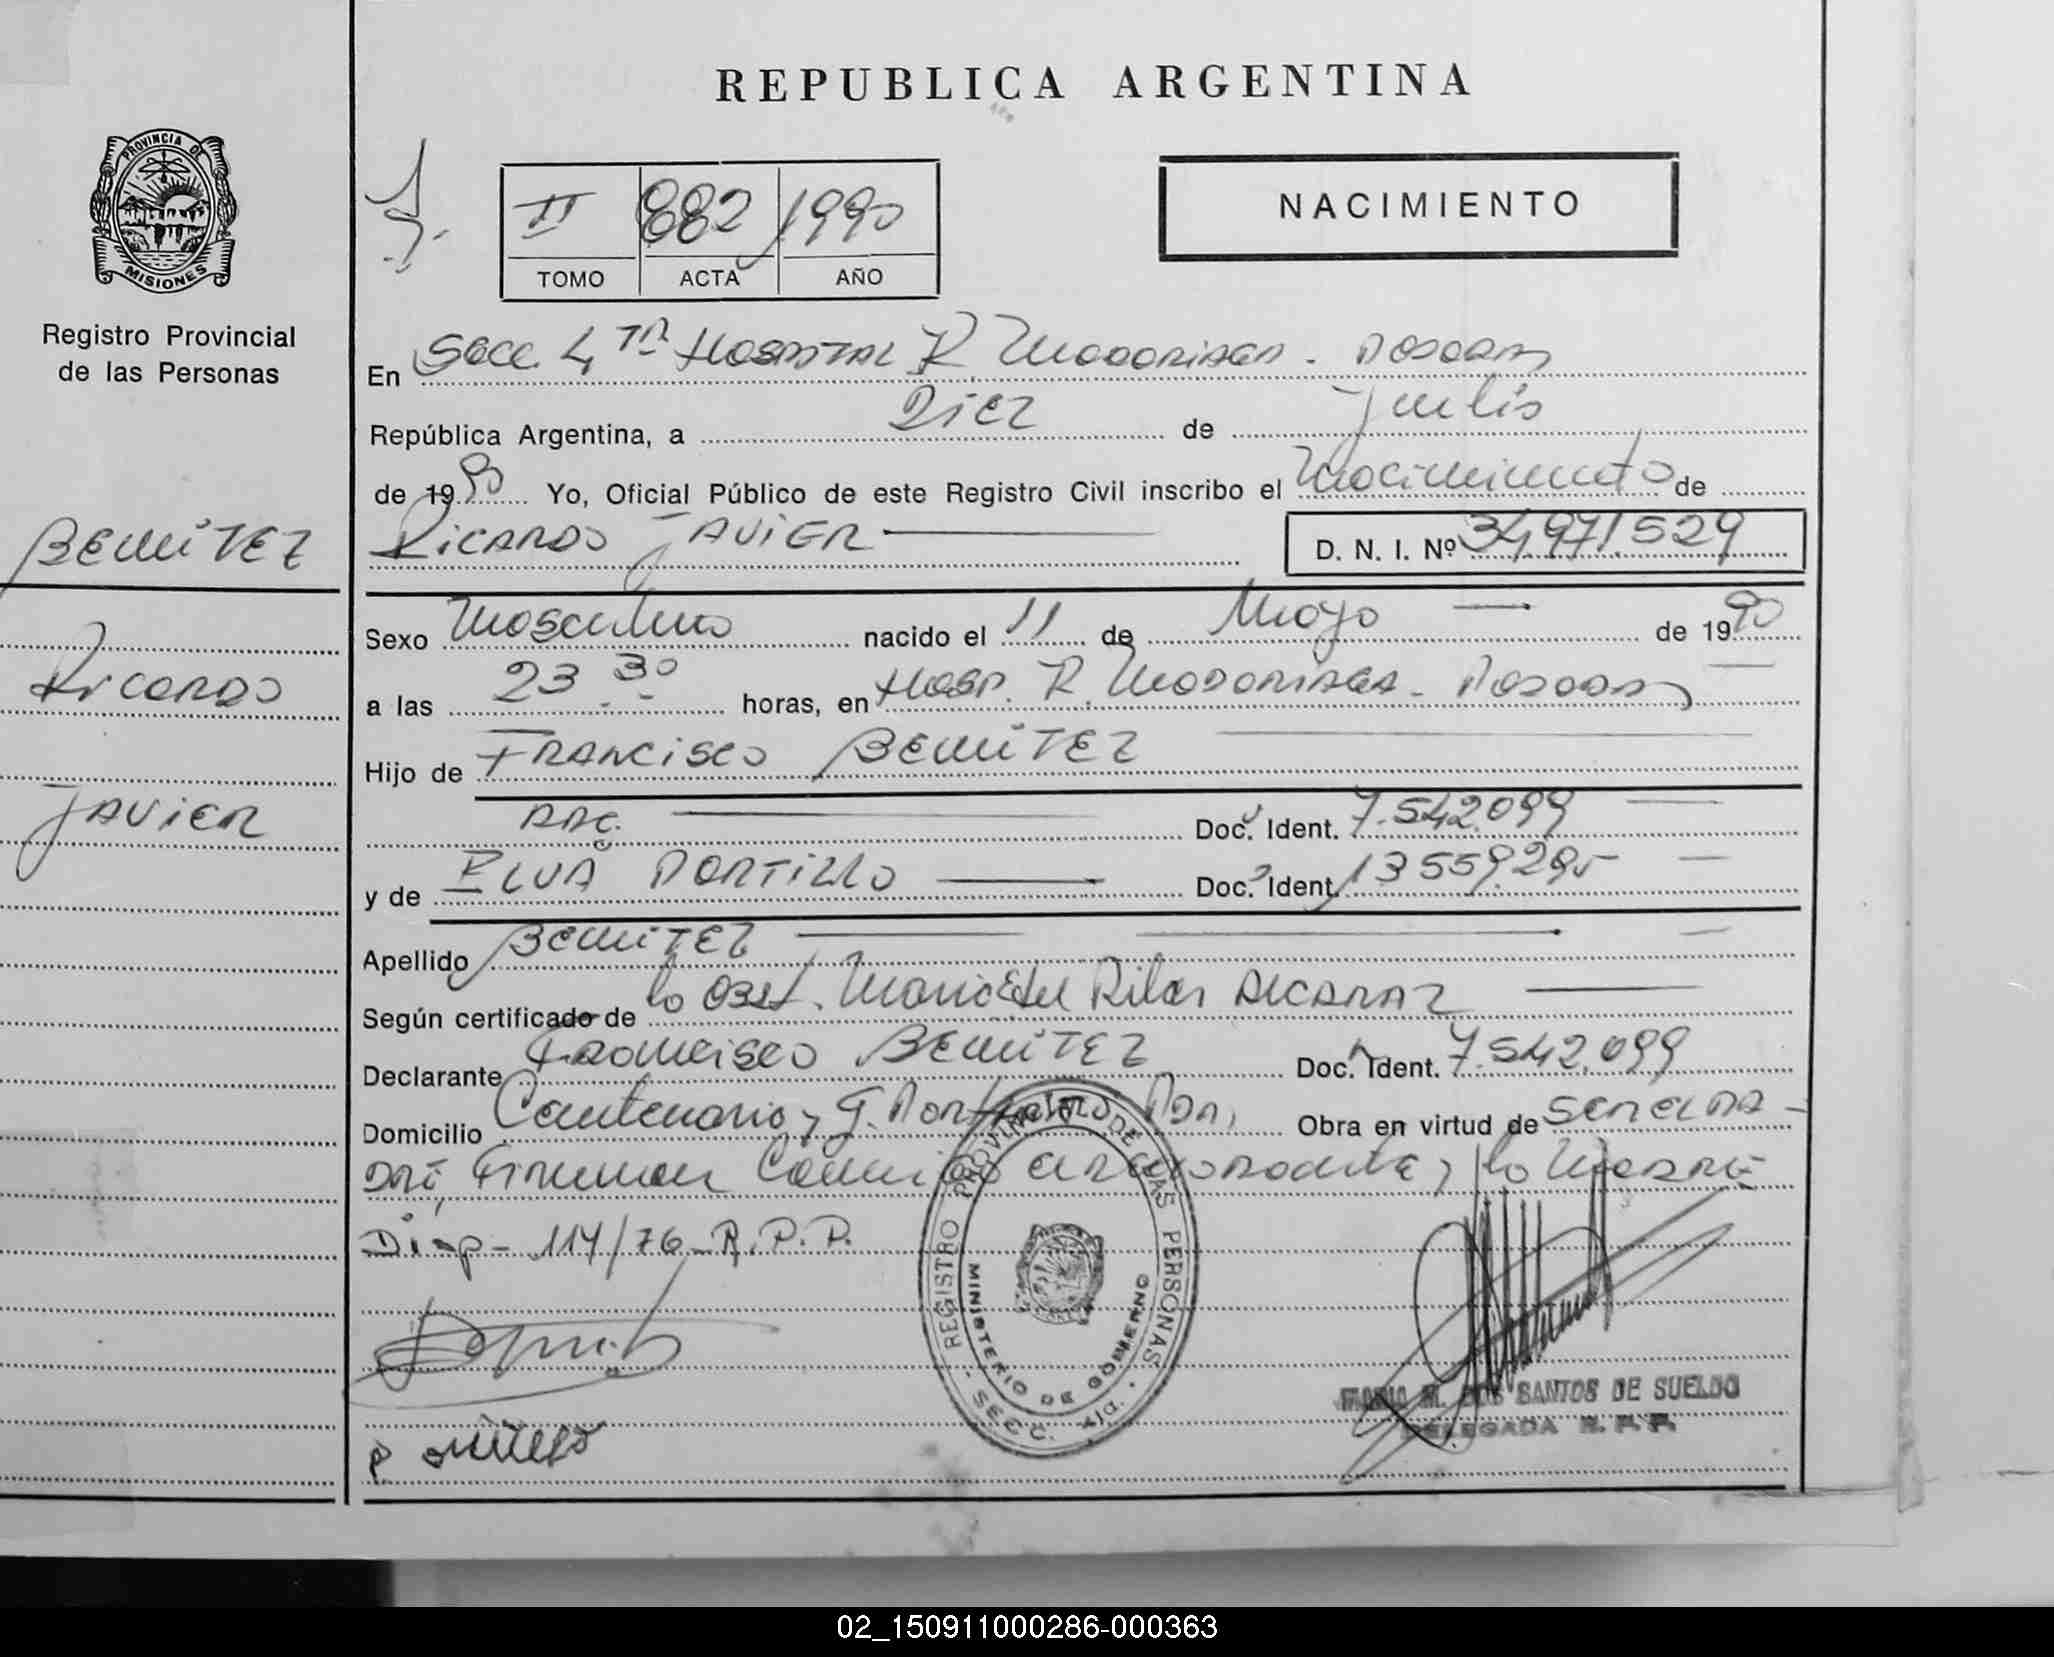 REPUBLICA ARGENTINA
PROVINCIA DE
MISIONES
Registro Provincial
de las Personas
II 882 1990
TOMO ACTA AÑO
NACIMIENTO
En Secc 4 TA Hospital R. Madariaga - Posadas
República Argentina, a Diez de Julio
de 1990 Yo, Oficial Público de este Registro Civil inscribo el Nacimiento de
Ricardo Javier D. N. I. Nº 34971.529
BENITEZ
Ricardo
Javier
Sexo Masculino nacido el 11 de Mayo de 1990
a las 23 30 horas, en Hosp. R. Madariaga - Posadas
Hijo de Francisco BENITEZ
Arg. Doc. Ident. 7.542.099
y de Elva Portillo Doc. Ident. 13559.295
Apellido BENITEZ
Según certificado de la Obst. Maria del Pilar Alcaraz
Declarante Francisco BENITEZ Doc. Ident. 7.542.099
Domicilio Centenario y Obra en virtud de
Firman la Madre
Disp - 114/76 - R.P.P.
REGISTRO PROVINCIAL DE LAS PERSONAS
MINISTERIO DE GOBIERNO
SECC. 4ta.
MARIA M. DOS SANTOS DE SUELDO
DELEGADA R. P. P.
02_150911000286-000363